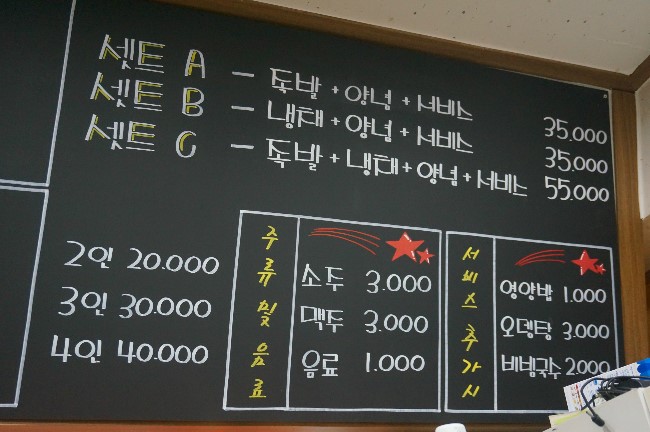 셋트 A - 족발 + 양념 + 서비스 35.000
셋트 B - 냉채 + 양념 + 서비스 35.000
셋트 C - 족발 + 냉채 + 양념 + 서비스 55.000
2인 20.000
3인 30.000
4인 40.000
주류 및 음료
소주 3.000
맥주 3.000
음료 1.000
서비스 추가시
영양밥 1.000
오뎅탕 3.000
비빔국수 2.000